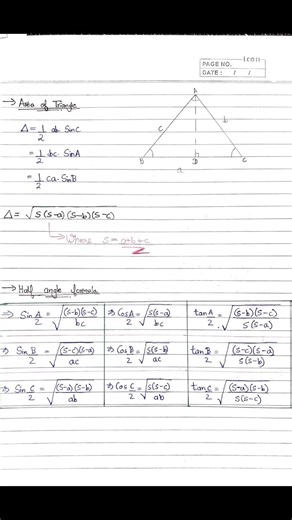 Icon
PAGE NO.
DATE: / /
→ Area of Triangle
A
Δ = 1/2 ab SinC
c b
= 1/2 bc. SinA
B D C
a
= 1/2 ca. SinB
Δ = √(s(s-a)(s-b)(s-c))
↳ Where s = (a+b+c)/2
→ Half angle formula
⇒ Sin A/2 = √((s-b)(s-c)/bc) ⇒ Cos A/2 = √(s(s-a)/bc) tan A/2 = √((s-b)(s-c)/s(s-a))
⇒ Sin B/2 = √((s-c)(s-a)/ac) ⇒ Cos B/2 = √(s(s-b)/ac) tan B/2 = √((s-c)(s-a)/s(s-b))
⇒ Sin C/2 = √((s-a)(s-b)/ab) ⇒ Cos C/2 = √(s(s-c)/ab) tan C/2 = √((s-a)(s-b)/s(s-c))